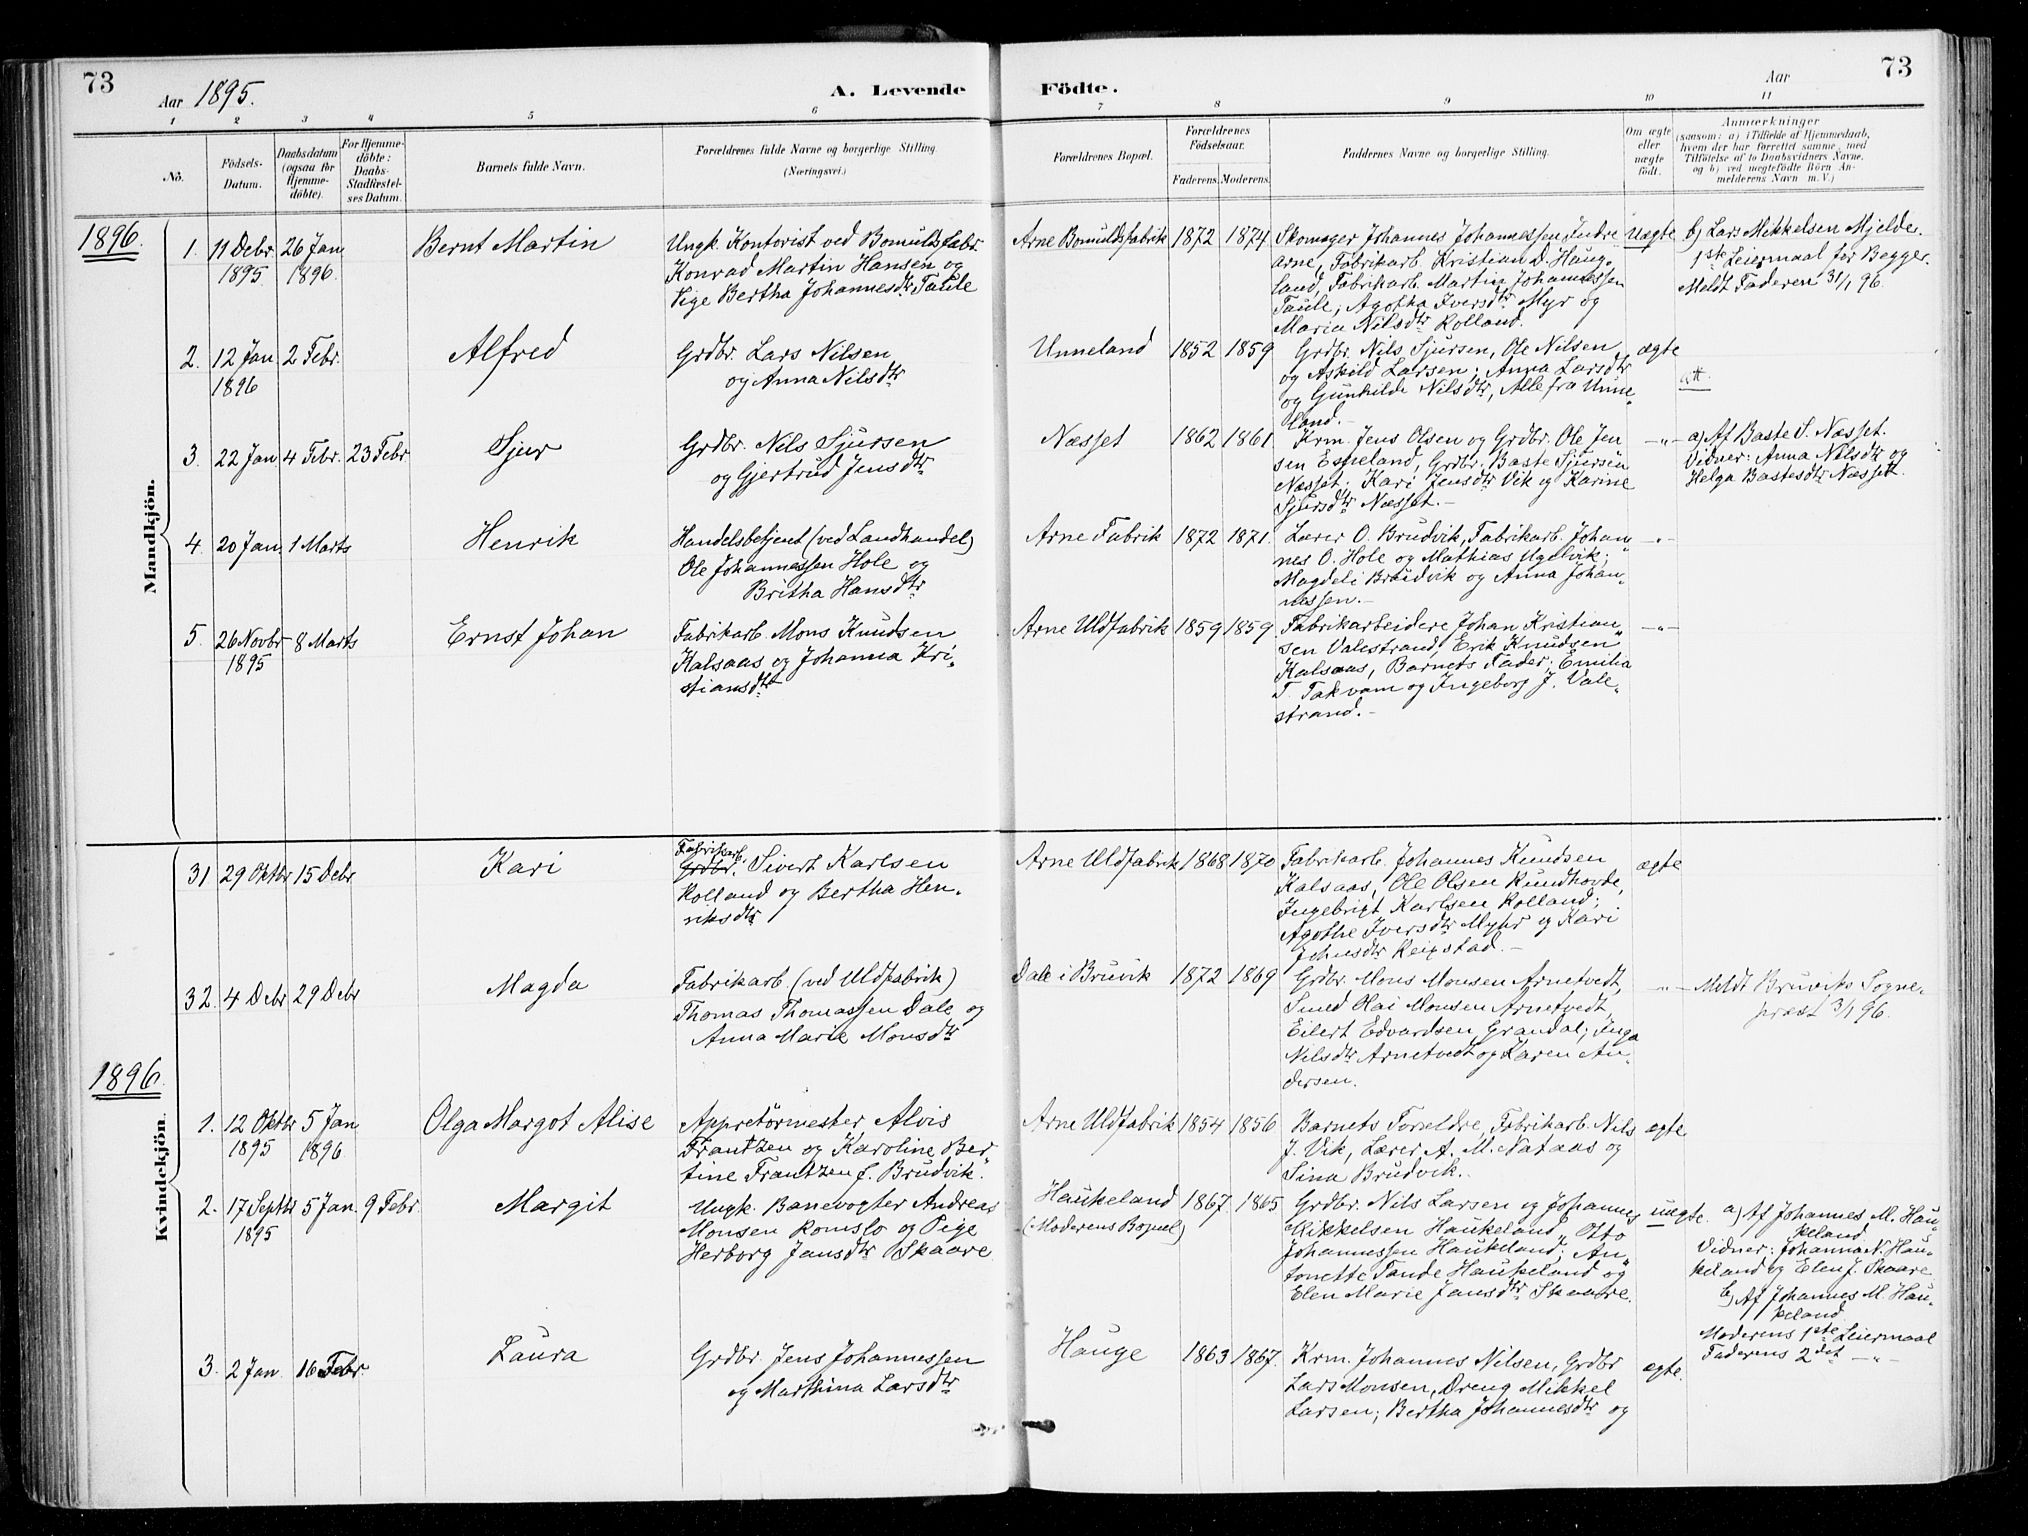 73
Aar 1895.
A. Levende
Födte.
Aar
73
1 2 3 4 5 6 7 8 9 10 11
No.
Födsels-
Datum.
Daabsdatum
(ogsaa for
Hjemme-
döbte).
For Hjemme-
döbte:
Daabs-
Stadfæstel-
ses Datum.
Barnets fulde Navn.
Forældrenes fulde Navne og borgerlige Stilling
(Næringsvei.)
Forældrenes Bopæl.
Forældrenes
Födselsaar.
Faderens. Moderens.
Faddernes Navne og borgerlige Stilling.
Om ægte
eller
uægte
födt.
Anmærkninger
(saasom: a) i Tilfælde af Hjemmedaab,
hvem der har forrettet samme, med
Tilföielse af to Daabsvidners Navne,
og b) ved uægtefödte Börn An-
melderens Navn m. V.)
Mandkjön.
1896.
1. 11 Debr 1895
26 Jan 1896.
Bernt Martin
Ungk. Kontorist ved Bomuldsfabr.
Konrad Martin Hansen og
Pige Bertha Johannesdtr Taule
Arne Bomuldsfabrik 1872 1874
Skomager Johannes Johannessen Indre
Arne, Fabrikarb. Kristian D. Haug-
land, Fabrikarb. Martin Johannessen
Taule, Agotha Iversdtr Myr og
Maria Nilsdtr Rolland.
Uægte
b) Lars Mikkelsen Mjelde.
1ste Leiermaal for Begge.
Meldt Faderen 31/1 96.
2. 12 Jan 1896
2 Febr.
Alfred
Grdbr. Lars Nilsen
og Anna Nilsdtr
Unneland 1852 1859
Grdbr. Nils Sjursen, Ole Nilsen
og Askild Larsen; Anna Larsdtr
og Gunhilde Nilsdtr, Alle fra Unne-
land.
ægte
att.
3. 22 Jan 4 Febr. 23 Febr
Sjur
Grdbr. Nils Sjursen
og Gjertrud Jensdtr
Næsset 1862 1861
Krm. Jens Olsen og Grdbr. Ole Jen
sen Espeland, Grdbr. Baste Sjursen
Næsset; Kari Jensdtr Vik og Karine
Sjursdtr Næsset.
-"-
a) Af Baste S. Næsset.
Vidner: Anna Nilsdtr og
Helga Bastesdtr Næsset
4. 20 Jan 1 Marts
Henrik
Handelsbetjent (ved Landhandel)
Ole Johannessen Hole og
Britha Hansdtr
Arne Fabrik 1872 1871.
Lærer O. Brudvik, Fabrikarb. Johan-
nes O. Hole og Mathias Ugelvik;
Magdeli Brudvik og Anna Johan-
nessen.
-"-
5. 26 Novbr 1895
8 Marts
Ernst Johan
Fabrikarb. Mons Knudsen
Kalsaas og Johanna Kri-
stiansdtr
Arne Uldfabrik 1859 1859
Fabrikarbeidere Johan Kristian-
sen Valestrand, Erik Knudsen
Kalsaas, Barnets Fader; Emilia
T. Takvam og Ingeborg J. Vale-
strand.
-"-
Kvindekjön.
31 29 Oktbr 15 Debr
Kari
Fabrikarb.
Grdbr. Sivert Karlsen
Rolland og Bertha Hen-
riksdtr
Arne Uldfabrik 1868 1870
Fabrikarb. Johannes Knudsen
Kalsaas, Ole Olsen Rundhovde,
Ingebrigt Karlsen Rolland;
Agothe Iversdtr Myhr og Kari
Johnsdtr Reigstad.
ægte
32. 4 Debr 29 Debr
Magda
Fabrikarb. (ved Uldfabrik)
Thomas Thomassen Dale og
Anna Marie Monsdtr
Dale i Bruvik 1872 1869
Grdbr. Mons Monsen Arnetvedt,
Smed Olai Monsen Arnetvedt,
Eilert Edvardsen Grandal; Inga
Nilsdtr Arnetvedt og Karen An-
dersen.
-"-
Meldt Bruviks Sogne-
præst 3/1 96.
1896.
1. 12 Oktbr 1895
5 Jan 1896
Olga Margot Alise
Appretörmester Alvis
Frantzen og Karoline Ber-
tine Frantzen f. Brudvik.
Arne Uldfabrik 1854 1856
Barnets Forældre, Fabrikarb. Nils
J. Vik, Lærer A. M. Nataas og
Sina Brudvik.
ægte
2. 17 Septbr 1895
5 Jan. 9 Febr.
Margit
Ungk. Banevogter Andreas
Monsen Romslo og Pige
Herborg Jansdtr Skaare
Haukeland
(Moderens Bopæl)
1867. 1865
Grdbr. Nils Larsen og Johannes
Mikkelsen Haukeland, Otto
Johannessen Haukeland; An-
tonette Tande Haukeland og
Elen Marie Jansdtr Skaare.
uægte.
a) Af Johannes M. Hau-
keland
Vidner: Johanna N. Hau-
keland og Elen J. Skaare
b) Af Johannes M. Hau-
keland
Moderens 1ste Leiermaal
Faderens 2det -"-
3. 2 Jan 16 Febr.
Laura
Grdbr. Jens Johannessen
og Marthina Larsdtr
Hauge 1863 1867.
Krm. Johannes Nilsen, Grdbr
Lars Monsen, Dreng Mikkel
Larsen; Bertha Johannesdtr og
ægte.